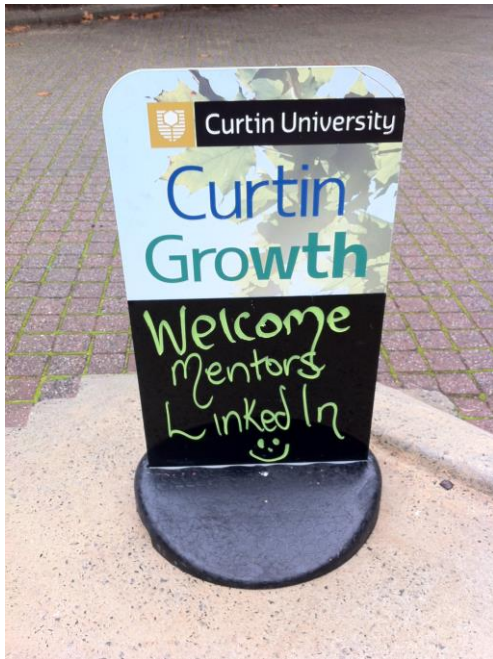 Curtin University
Curtin
Growth
Welcome
Mentors
Linked In